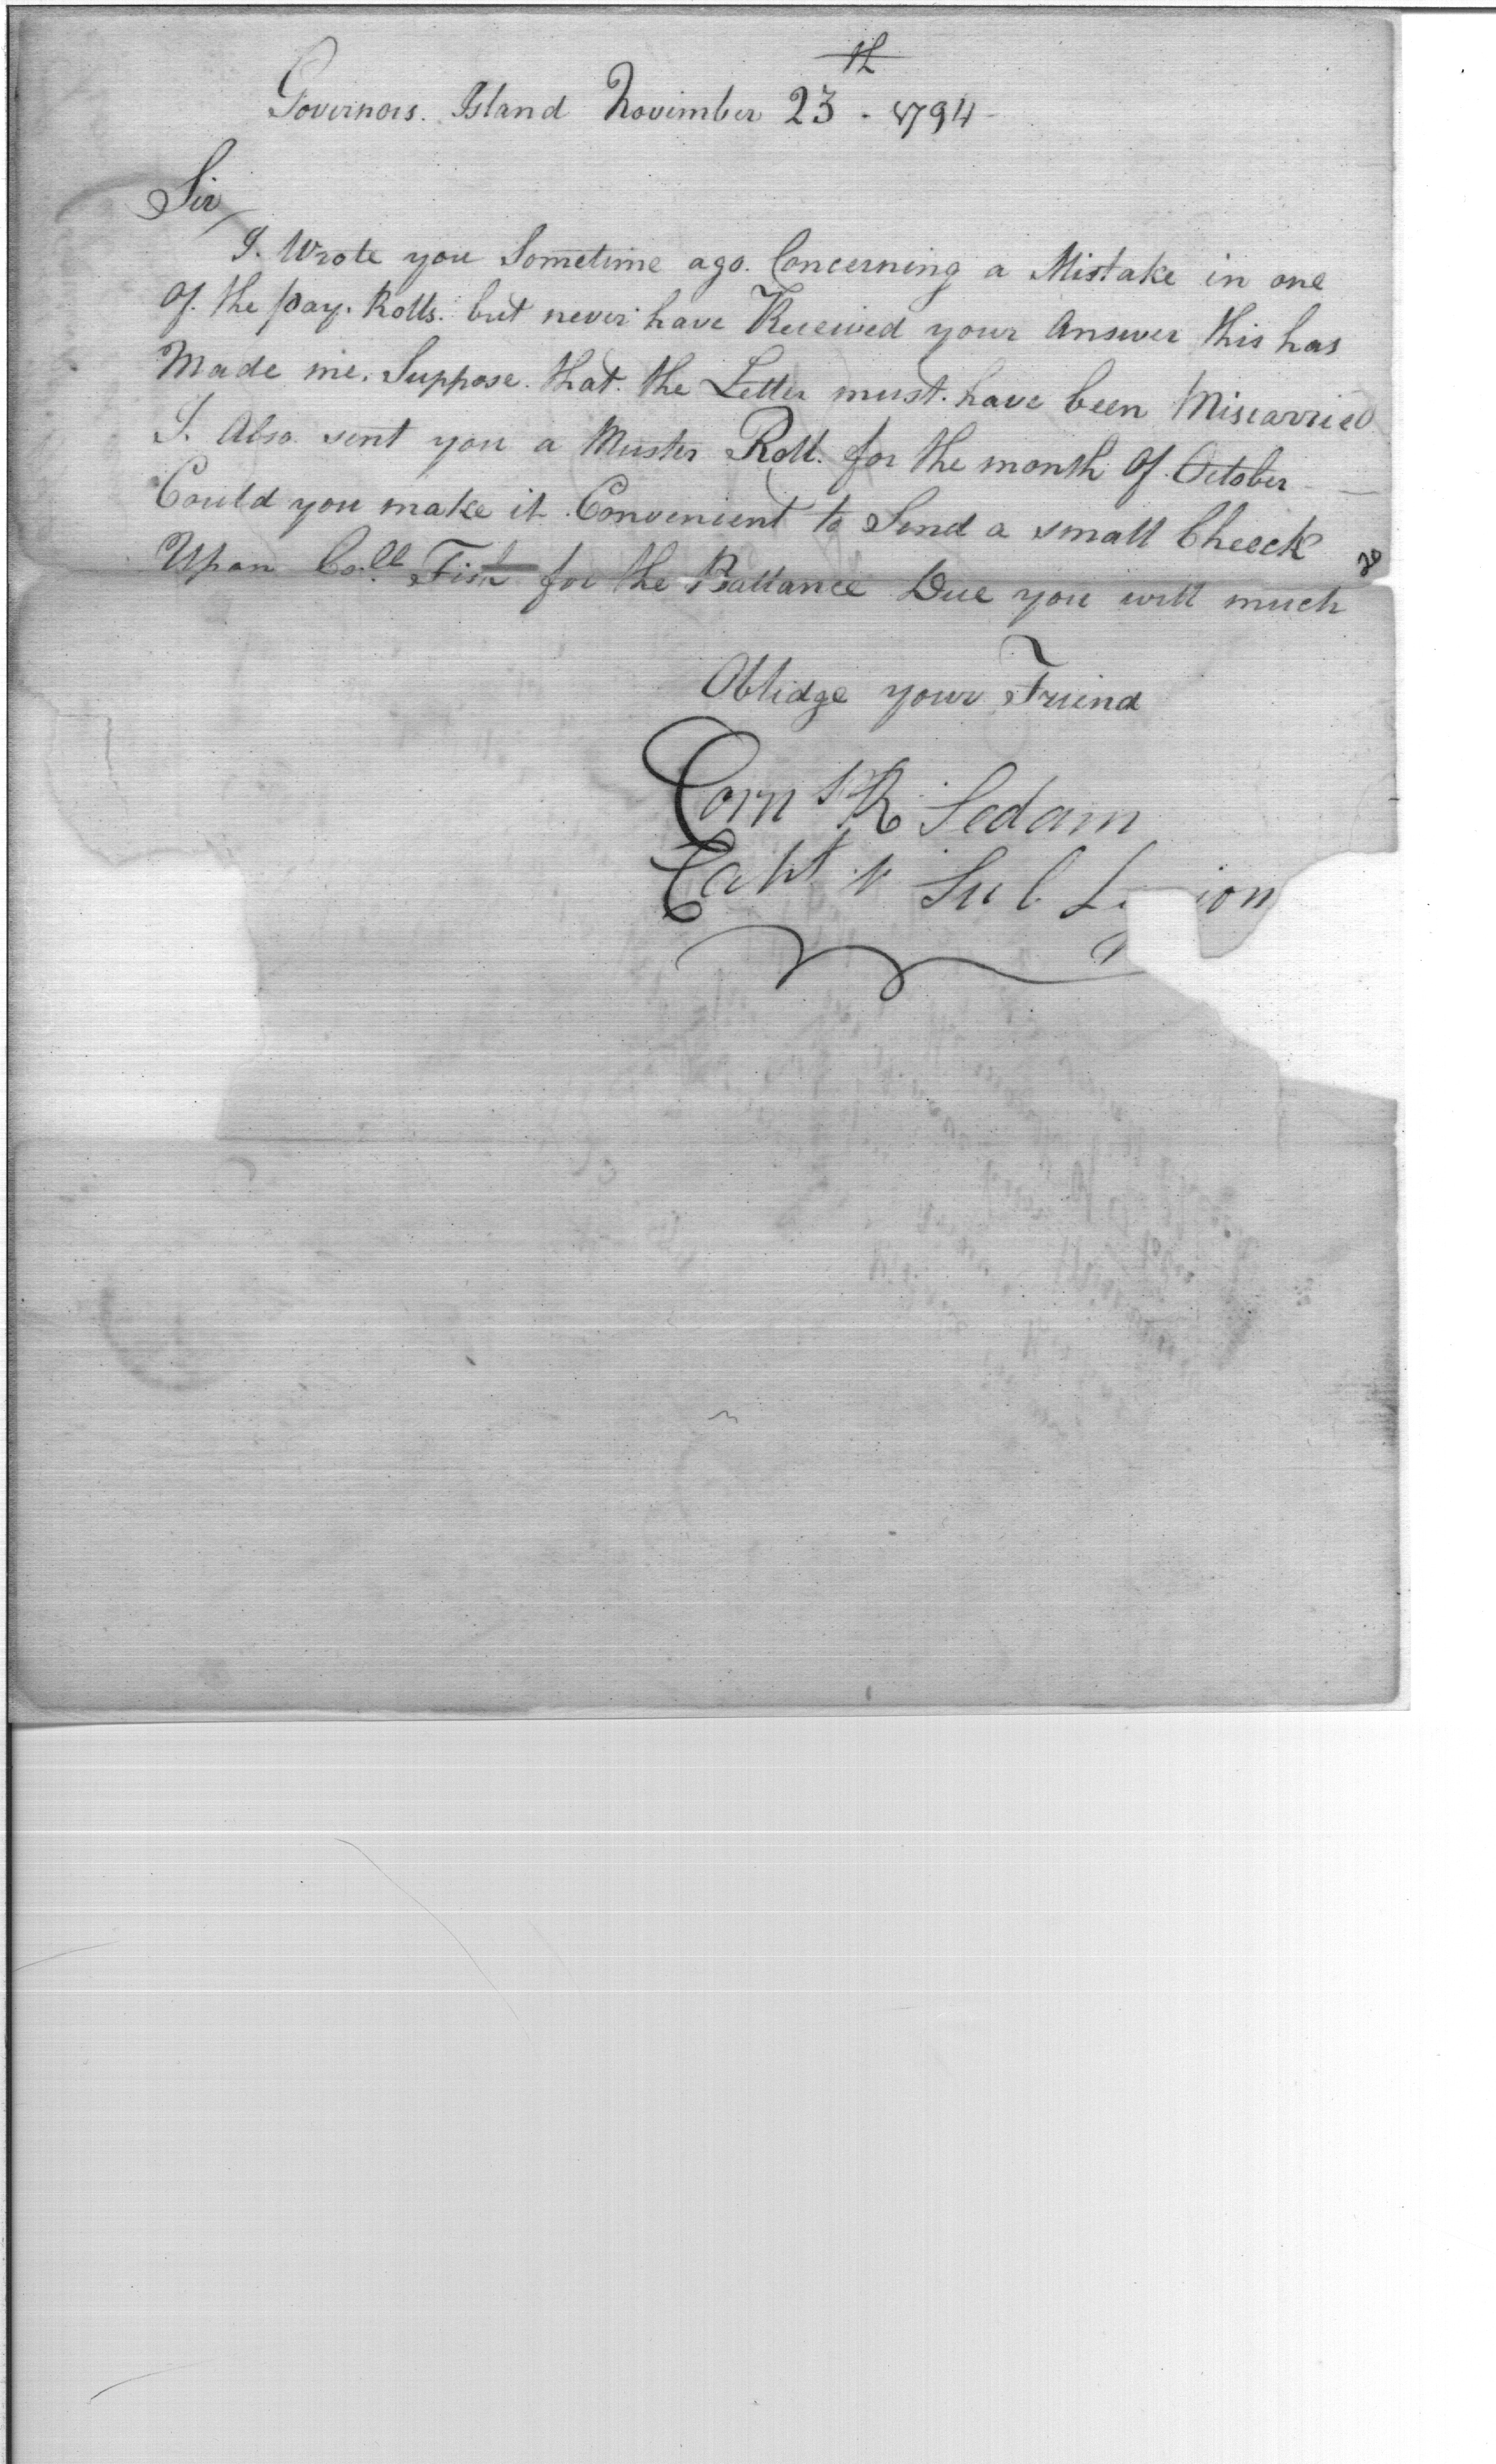 Governors. Island November 23th. 1794
Sir
I. Wrote you Sometime ago. Concerning a Mistake in one
Of. the pay. Rolls. but never have Received your Answer this has
Made me. Suppose. that. the Letter must. have been Miscarried
I. Also sent you a Muster Roll. for the month Of. October
Could you make it Convenient to Send a small Cheeck
Upon Coll. Fish for the Ballance Due you will much
Oblidge your Friend
Corns R Sedam
Capt Sub L ion